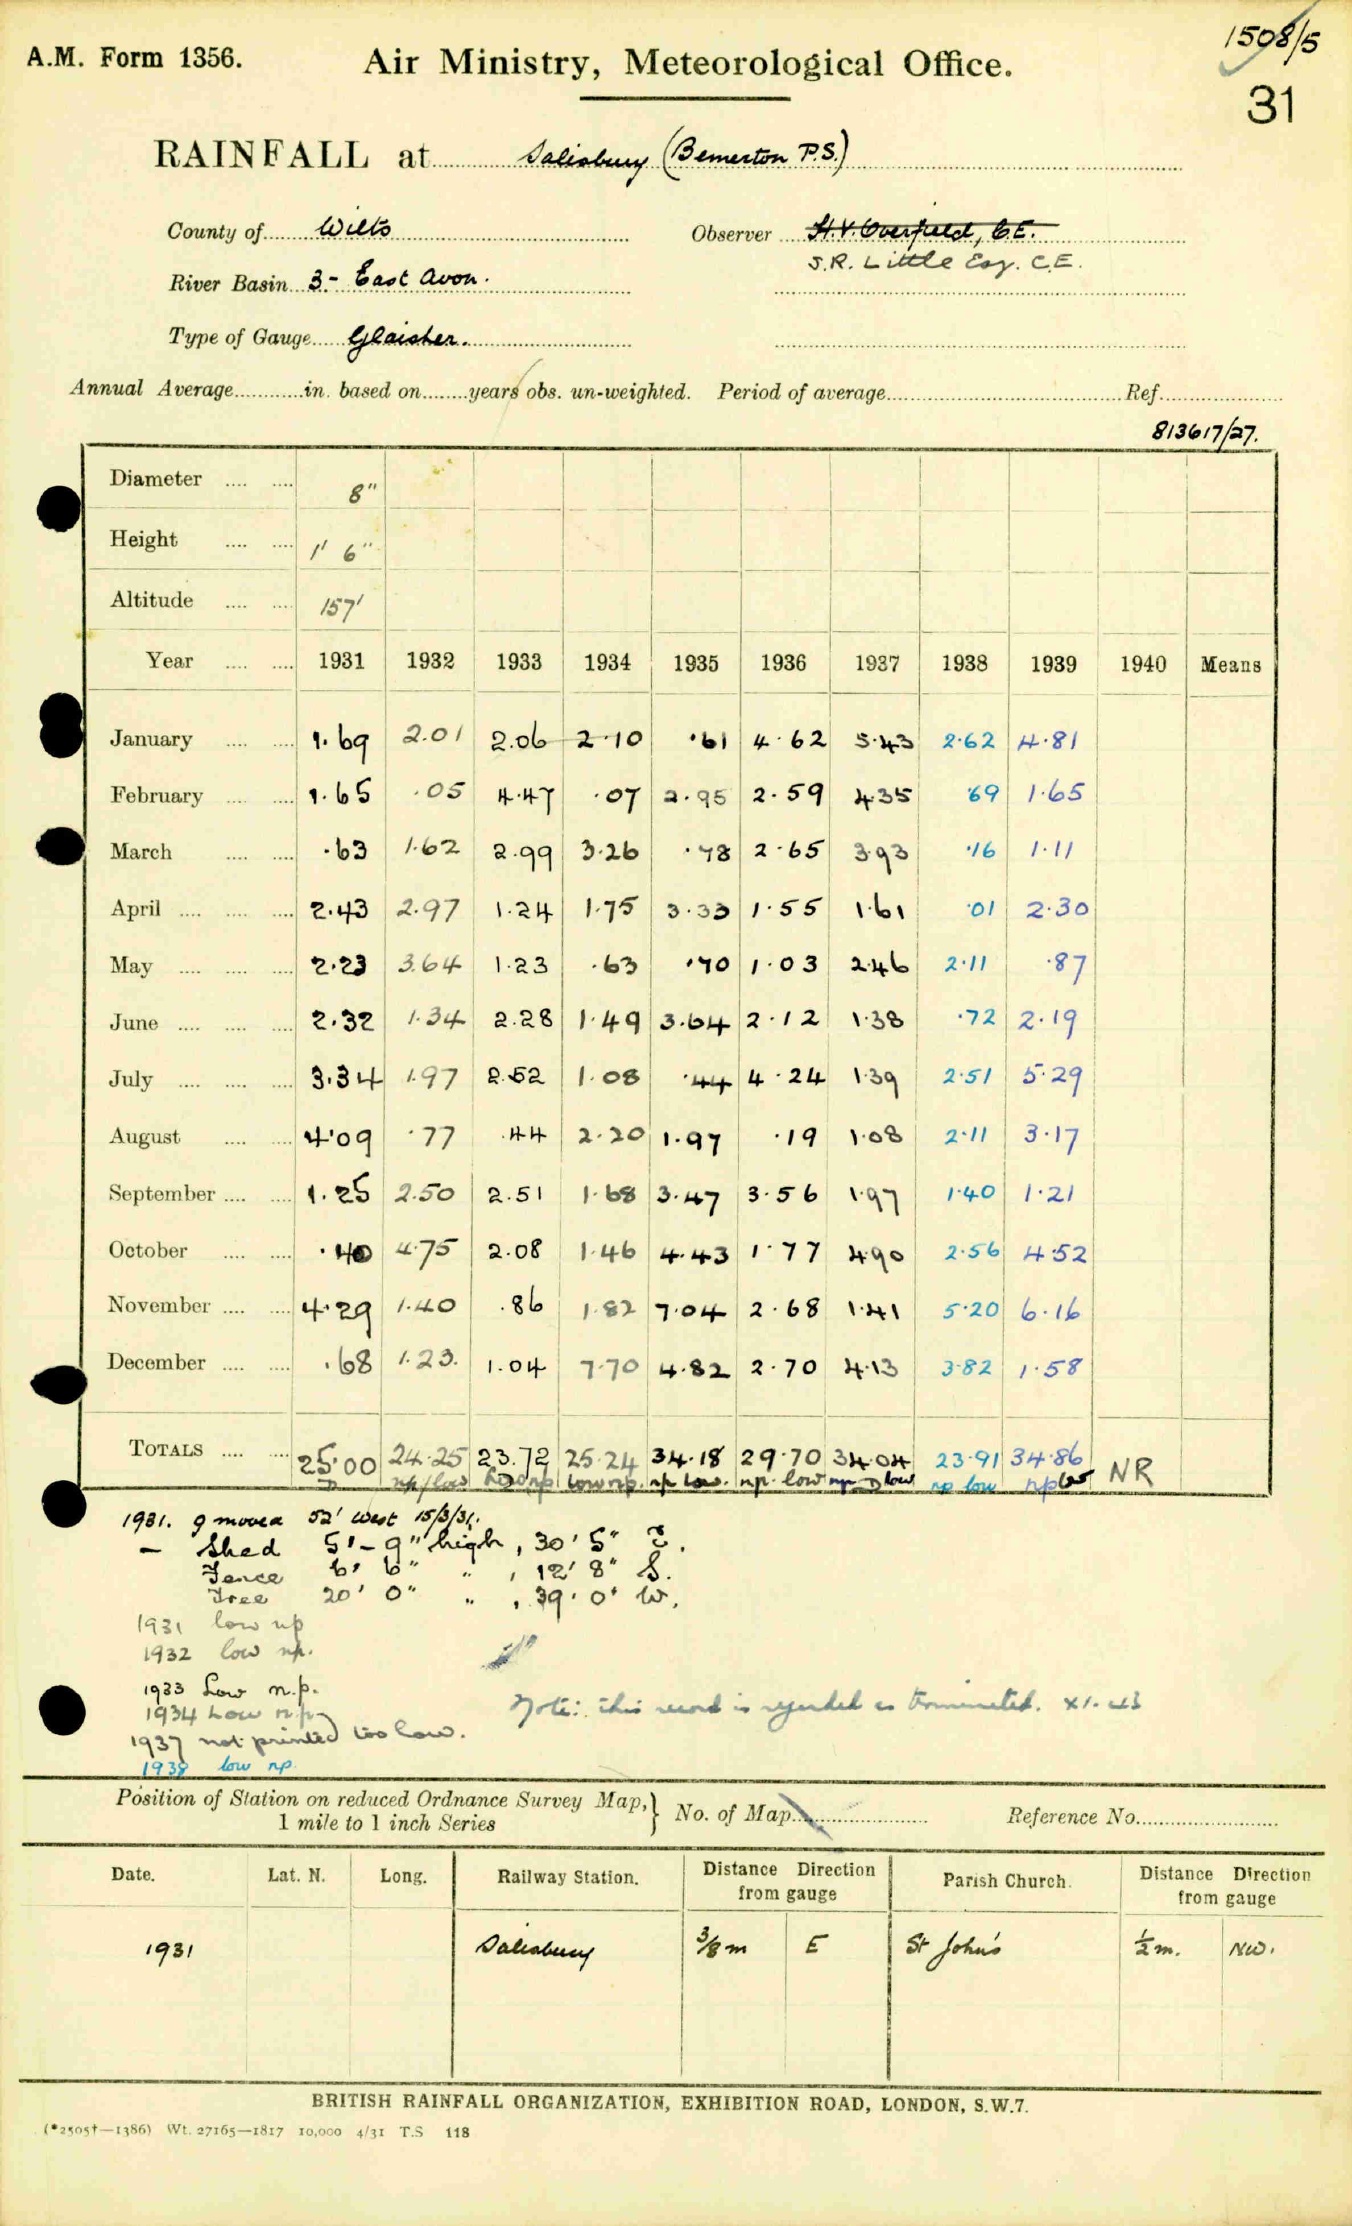 1508/5
A.M. Form 1356. Air Ministry, Meteorological Office.
31
RAINFALL at Salisbury (Bemerton P.S.)
County of Wilts Observer H.V. Overfield, C.E.
J.R. Little Esq. C.E.
River Basin 3 - East Avon.
Type of Gauge Glaisher.
Annual Average in. based on years obs. un-weighted. Period of average Ref.
813617/27.
Diameter 8"
Height 1' 6"
Altitude 157'
Year 1931 1932 1933 1934 1935 1936 1937 1938 1939 1940 Means
January 1.69 2.01 2.06 2.10 .61 4.62 5.43 2.62 4.81
February 1.65 .05 4.47 .07 2.95 2.59 4.35 .69 1.65
March .63 1.62 2.99 3.26 .78 2.65 3.93 .16 1.11
April 2.43 2.97 1.24 1.75 3.33 1.55 1.61 .01 2.30
May 2.23 3.64 1.23 .63 .70 1.03 2.46 2.11 .87
June 2.32 1.34 2.28 1.49 3.64 2.12 1.38 .72 2.19
July 3.34 1.97 2.52 1.08 .44 4.24 1.39 2.51 5.29
August 4.09 .77 .44 2.20 1.97 .19 1.08 2.11 3.17
September 1.25 2.50 2.51 1.68 3.47 3.56 1.97 1.40 1.21
October .40 4.75 2.08 1.46 4.43 1.77 4.90 2.56 4.52
November 4.29 1.40 .86 1.82 7.04 2.68 1.41 5.20 6.16
December .68 1.23. 1.04 7.70 4.82 2.70 4.13 3.82 1.58
TOTALS 25.00 24.25 23.72 25.24 34.18 29.70 34.04 23.91 34.86 NR
np/low low np low np. np low. np. low np low np low np low
1931. g moved 52' West 15/3/31.
— Shed 5' - 9" high, 30' 5" E.
Fence 6' 6" " , 12' 8" S.
Tree 20' 0" " , 39' 0" W.
1931 low np
1932 low np.
1933 Low n.p.
1934 Low n.p.
Note: this record is regarded as terminated. XI.43
1937 not printed too low.
1938 low np.
Position of Station on reduced Ordnance Survey Map, 1 mile to 1 inch Series } No. of Map Reference No.
Date. Lat. N. Long. Railway Station. Distance Direction from gauge Parish Church. Distance Direction from gauge
1931 Salisbury 3/8 m E St John's 1/2 m. NW.
BRITISH RAINFALL ORGANIZATION, EXHIBITION ROAD, LONDON, S.W.7.
(*2505†—1386) Wt. 27165—1817 10,000 4/31 T.S 118